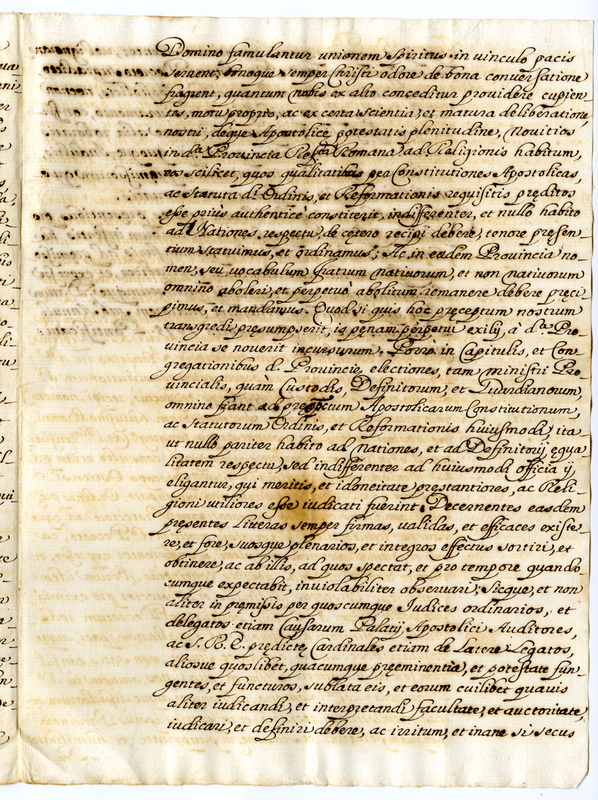 Domino famulantur unionem Spiritus in vinculo pacis
servent, bonoque semper Christi odore de bona conversatione
fragrent, quantum nobis ex alto conceditur providere cupien-
tes, motu proprio, ac ex certa scientia, et matura deliberatione
nostris, deque Apostolicę potestatis plenitudine, Novitios
in d.a Provincia Refda Romana ad Religionis habitum,
eos scilicet, quos qualitatibus per Constitutiones Apostolicas,
ac Statuta d.i Ordinis, et Reformationis requisitis pręditos
esse prius authenticè constiterit, indifferenter, et nullo habito
ad Nationes respectu, de cętero recipi debere, tenore presen-
tium statuimus, et ordinamus; Ac in eadem Provincia no-
men, seu vocabulum fratrum nativorum, et non nativorum
omnino aboleri, et perpetuò abolitum remanere debere pręci-
pimus, et mandamus. Quod si quis hoc pręceptum nostrum
transgredi pręsumpserit, is pęnam perpetui exilij à d.ta Pro-
vincia se noverit incursurum, Porrò in Capitulis, et Con-
gregationibus d. Provincię, electiones, tam ministri Pro-
vincialis, quam Custodis, Definitorum, et Guardianorum
omnino fiant ad Apostolicarum Constitutionum,
ac Statutorum Ordinis, et Reformationis huiusmodi, ita-
ut nullo pariter habito ad Nationes, et ad Definitorij ęqua-
litatem respectu, sed indifferenter ad huiusmodi officia ij
eligantur, qui meritis, et idoneitate prestantiores, ac Reli-
gioni utiliores esse iudicati fuerint. Decernentes easdem
pręsentes litteras semper firmas, validas, et efficaces existe-
re, et fore, suosque plenarios, et integros effectus sortiri, et
obtinere, ac ab illis, ad quos spectat, et pro tempore quando-
cumque expectabit, inviolabiliter observari; Sicque, et non
aliter in pręmisis per quoscumque Iudices ordinarios, et
delegatos etiam Causarum Palatij Apostolici Auditores,
ac S. R. E. prędictę Cardinales etiam de Latere Legatos,
aliosve quoslibet, quacumque pręeminentia, et potestate fun-
gentes, et functuros, sublata eis, et eorum cuilibet quavis
aliter iudicandi, et interpretandi facultate, et auctoritate,
iudicari, et definiri debere, ac irritum, et inane si secus